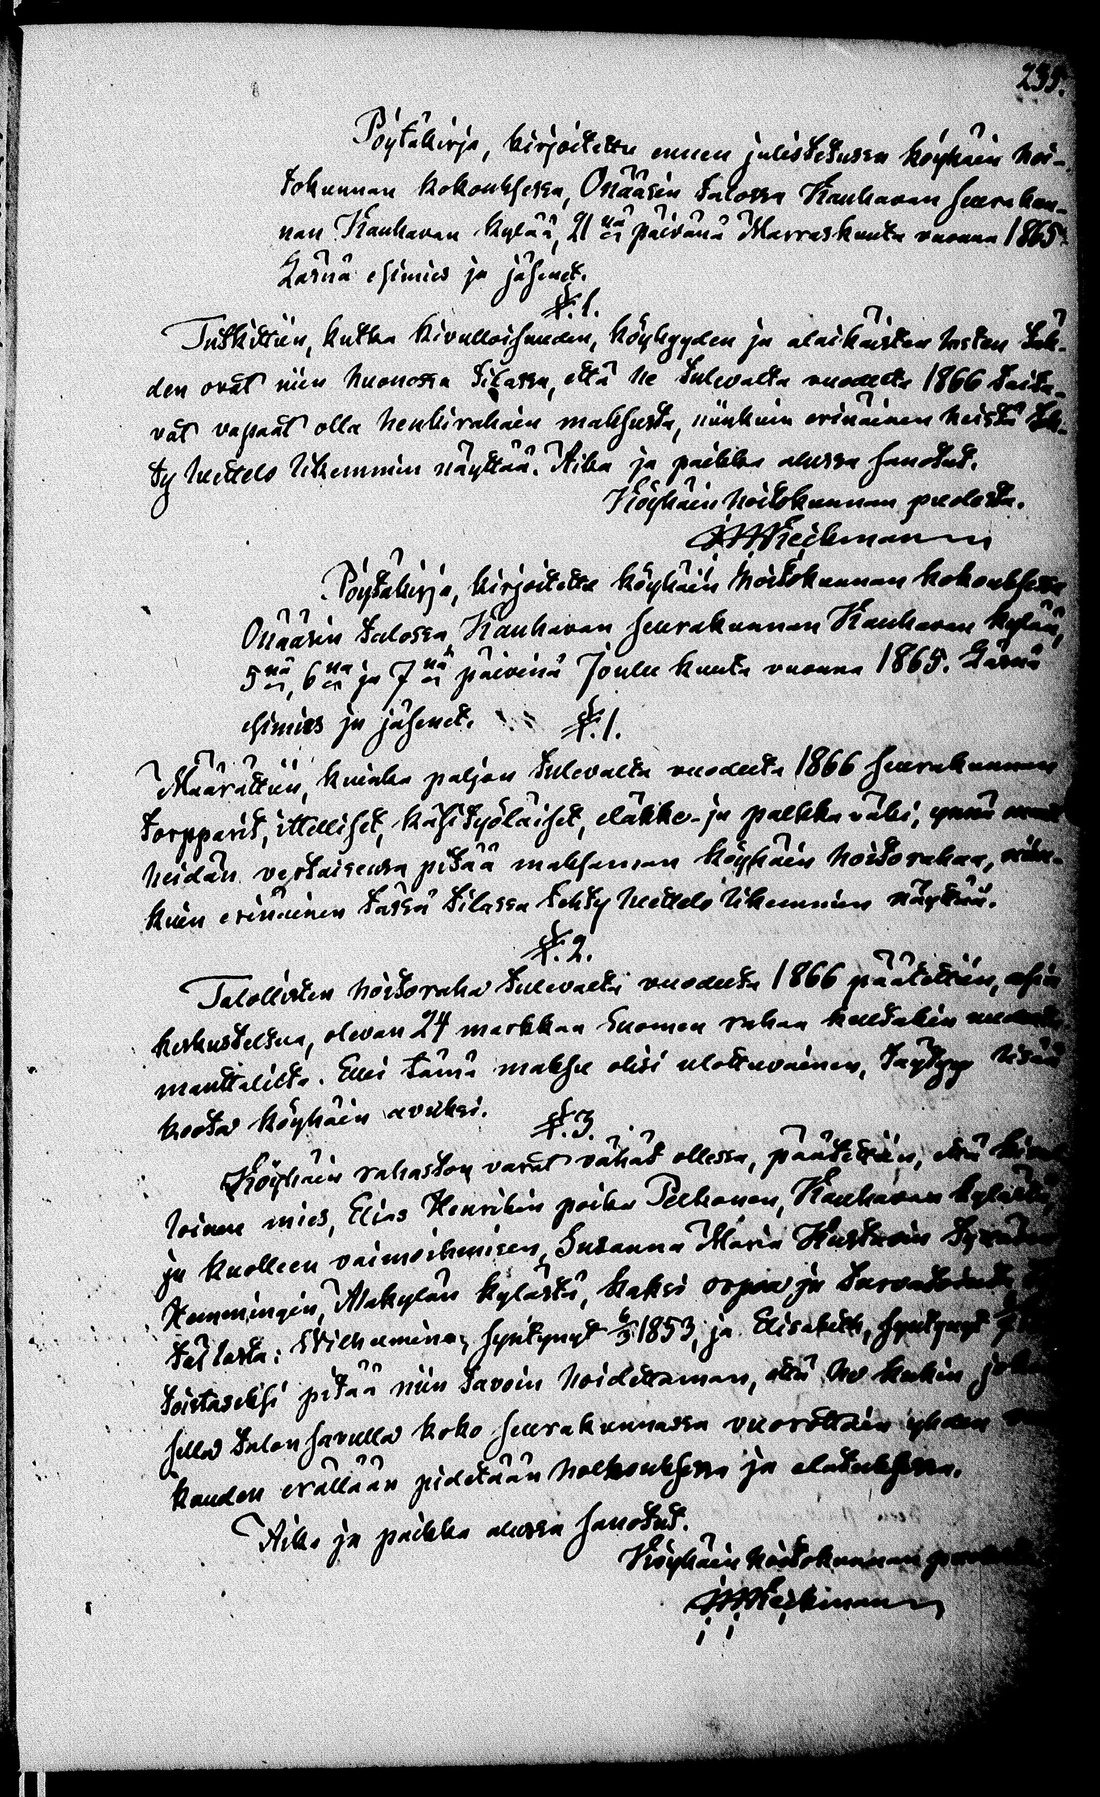 235.
Pöytäkirja, kirjoitettu ennen julistetussa köyhäin hoi-
tokunnan kokouksessa, Ollääsin talossa Kauhavan seurakun-
nan Kauhavan kylää, 21 nä päivänä Marraskuuta vuonna 1865.
Läsnä esimies ja jäsenet.
§.1.
Tutkittiin, kutka kivulloisuuden, köyhyyden ja alaikäisten lasten täh-
den ovat niin huonossa tilassa, että he tulevalta vuodelta 1866 taita-
vat vapaat olla henkirahain maksusta, niinkuin erinäinen heistä teh-
ty luettelo likemmin näyttää. Aika ja paikka alussa sanotut.
Köyhäin hoitokunnan puolesta.
Pöytäkirja, kirjoitettu köyhäin hoitokunnan kokouksessa
Ollääsin talossa Kauhavan seurakunnan Kauhavan kylää,
5 nä, 6 na ja 7 nä päivinä Joulu kuuta vuonna 1865. Läsnä
esimies ja jäsenet. §.1.
Määrättiin, kuinka paljon tulevalta vuodelta 1866 seurakunnan
torpparit, itselliset, käsityöläiset, eläkke- ja palkkaväki, ynnä muut
heidän vertaisensa pitää maksaman köyhäin hoitorahaa, niin-
kuin erinäinen tässä tilassa tehty luettelo likemmin näyttää.
§.2.
Talollisten hoitoraha tulevalta vuodelta 1866 päätettiin, asia
keskusteltua, olevan 24 markkaa Suomen rahaa kultakin
manttalilta. Ellei tämä maksu olisi ulottuvainen, täytyy lisää
koota köyhäin avuksi. §.3.
Köyhäin rahaston varat vähät ollessa, päätettiin, että
loinen mies, Elias Henrikin poika Pelkonen, Kauhavan kylästä,
ja kuolleen vaimoihmisen, Susanna Maria Kustavin tytären
Hemmingin, Alakylän kylästä, kaksi orpoa ja turvatointa
lasta: Wilhelmina, syntynyt 1853, ja Elisabeth, syntynyt
toistaseksi pitää niin tavoin hoidettaman, että he kukin
sella talon savulla koko seurakunnassa vuorottain yhden
kauden erällään pidetään holhouksessa ja elatuksessa.
Aika ja paikka alussa sanotut.
Köyhäin hoitokunnan puolesta